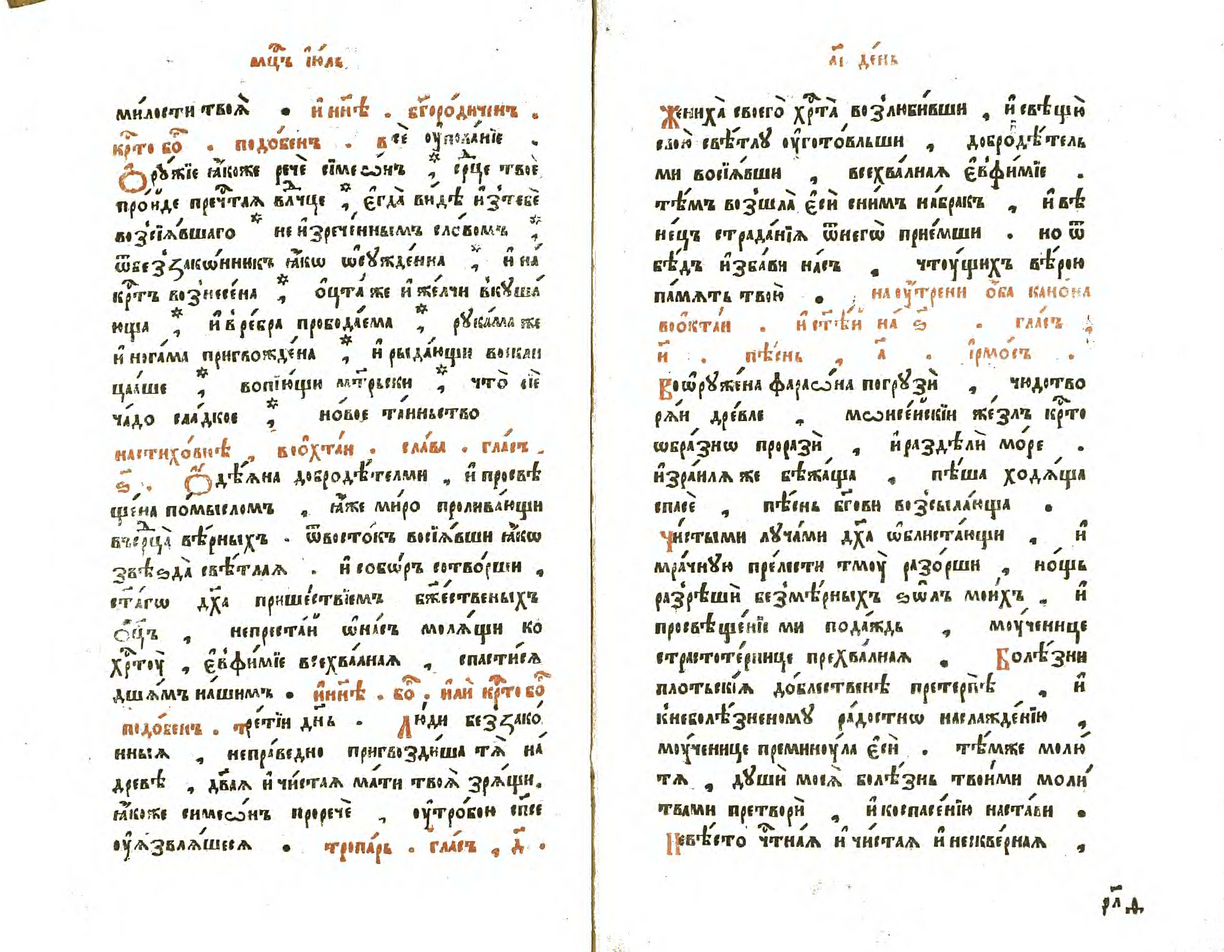 мц҃ъ і҆ю́ль
ми́лости твоѧ̀ • и҆ нн҃ѣ . бг҃оро́диченъ .
кр҃то бо҃ . подо́бенъ . всѐ ѹ҆пова́нїе .
Ѻ҆рꙋ́жїе ꙗ҆́коже речѐ сїмеѡ́нъ * , ср҃це твоѐ
про́йде преч҃тая влч҃це * , є҆гда̀ ви́дѣ и҆з̾тебѐ
воз̾сїѧ́вшаго * неи҆зрече́ннымъ сло́вомъ * ,
ѿбез̾зако́нникъ ꙗ҆́кѡ ѡ҆сꙋжде́нна * , и҆ на
кр҃тъ вознесе́на * , ѻ҆́цта же и҆ же́лчи вкꙋша́
юща * , и҆ в ре́бра прободае́ма * , рꙋка́ма же
и҆ нога́ма пригвожде́на * , и҆ рыда́ющи воскли
ца́аше * , вопїю́щи мт҃рьски * , что̀ сїѐ
ча́до сла́дкое * , но́вое та́иньство
настихо́внѣ , воѻ҆хта́и . сла́ва . гла́съ .
ѕ҃ . Ѻ҆дѣ́ѧна добродѣ́телми , и҆ просвѣ
ще́на по́мысломъ , ꙗ҆́же ми́ро пролива́ющи
въср҃ца̀ вѣ́рныхъ . ѿвосто́къ восїѧ́вши ꙗ҆́кѡ
звѣзда̀ свѣ́тлая . и҆ собѡ́ръ сотво́рши ,
ст҃а́гѡ дх҃а прише́ствїемъ бж҃ественыхъ
ѻ҆ц҃ъ , непреста́й ѡ҆на́съ молѧ́щи ко
хр҃тꙋ̀ , є҆в̾фи́мїе всехва́лная , спасти́сѧ
дш҃ѧмъ на́шимъ . и҆ нн҃ѣ . бо҃ . и҆лѝ кр҃то бо҃
подо́бенъ . тре́тїи дн҃ь . Лю́ди без̾зако́
нныѧ , непра́ведно пригвозди́ша тѧ̀ на
дре́вѣ , дв҃ая и҆ чи́стая ма́ти твоѧ̀ зрѧ́щи .
ꙗ҆́коже симеѡ́нъ проречѐ , ѹ҆тро́бою сп҃се
ѹ҆ѧзвлѧ́шесѧ . тропа́рь . гла́съ , д҃ .
аі҃ де́нь
Жениха̀ своего̀ хр҃та̀ возлюби́вши , и҆ свѣщꙋ̀
свою̀ свѣ́тлꙋ ѹ҆гото́вльши , доброд̾ѣ́тель
ми восїѧ́вши , всехва́лная є҆в̾фи́мїе .
тѣ́мъ возшла̀ є҆сѝ сни́мъ на́бракъ , и҆ вѣ
не́цъ страда́нїѧ ѿнегѡ̀ прие́мши . но ѿ
бѣ́дъ и҆зба́ви на́съ , чтꙋ́щихъ вѣ́рою
па́мѧть твою̀ . на ѹ҆́трени ѻ҆́ба кано́на
воѻ҆кта́и . и҆ ст҃ѣ́й на̀ ѕ҃ . гла́съ ,
и҃ . пѣ́снь , а҃ . і҆рмо́съ .
Воѡ҆рꙋже́на фараѡ́на погрꙋзѝ , чюдотво
рѧ́й дре́вле , мѡисе́йскїи же́злъ кр҃то
ѡ҆бра́знѡ поразѝ , и҆ раздѣлѝ мо́ре .
и҆зра́илѧ же бѣжа́ща , пѣ́ша ходѧ́ща
спасѐ , пѣ́снь бг҃ови воз̾сыла́юща .
Чи́стыми лꙋча́ми дх҃а ѡ҆блиста́ющи , и҆
мра́чнꙋю пре́лести тмꙋ̀ разо́рши , но́щь
раз̾рѣшѝ безмѣ́рныхъ ѕѡ́лъ мои́хъ . и҆
просвѣще́нїе ми пода́ждь , мꙋ́ченице
страстоте́рпице прехва́лная . Болѣ́зни
пло́тьскїѧ до́блественѣ претерпѣ̀ , и҆
кнеболѣ́зненомꙋ ра́достнѡ наслажде́нїю ,
мꙋ́ченице преминꙋ́ла є҆сѝ . тѣ́мже молю́
тѧ , дꙋшѝ моеѧ̀ болѣ́знь твои́ми моли́
твами претворѝ , и҆ коспасе́нїю наста́ви .
Невѣ́сто чт҃наѧ и҆ чи́стая и҆ нескве́рная ,
рл҃д